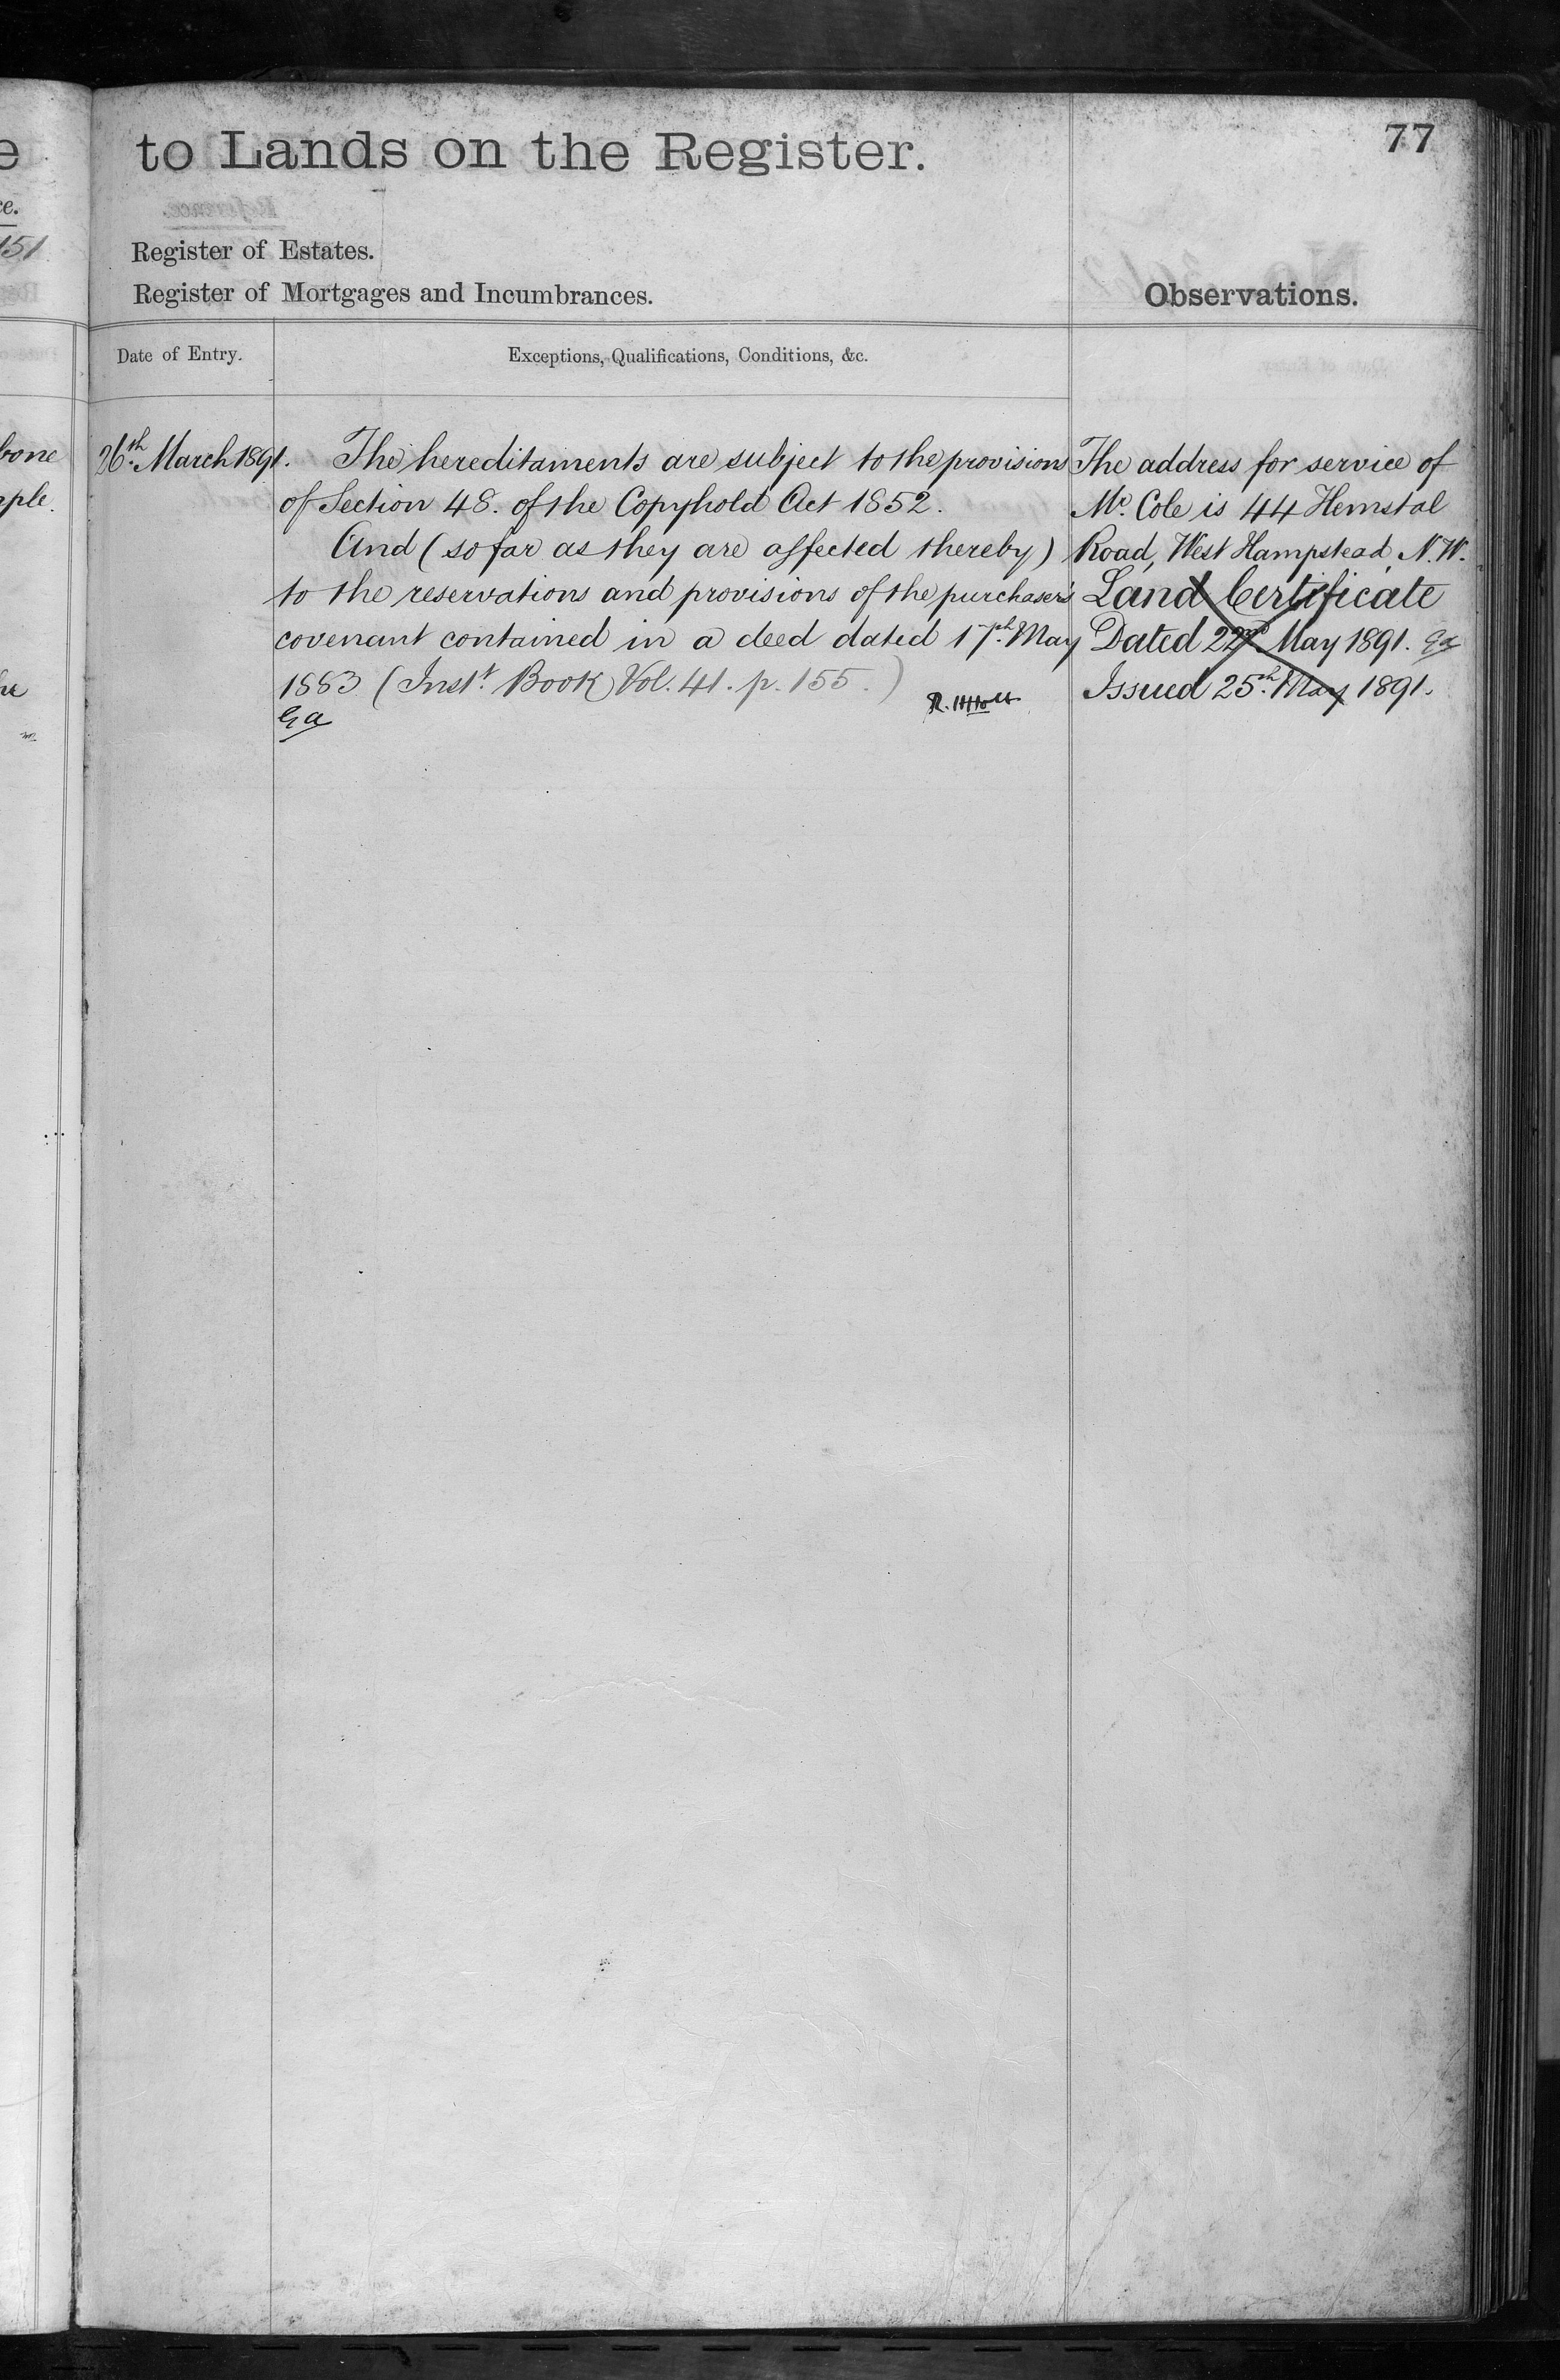 to Lands on the Register.
77
Register of Estates.
Register of Mortgages and Incumbrances.
Observations.
Date of Entry.
Exceptions, Qualifications, Conditions, &c.
26th March 1891.
The hereditaments are subject to the provisions
of Section 48. of the Copyhold Act 1852.
And (so far as they are affected thereby)
to the reservations and provisions of the purchaser's
covenant contained in a deed dated 17th May
1883 (Inst. Book Vol. 41. p. 155.)
The address for service of
Mr. Cole is 44 Hemstal
Road, West Hampstead, N.W.
Land Certificate
Dated 22nd May 1891.
Issued 25th May 1891.
151
bone